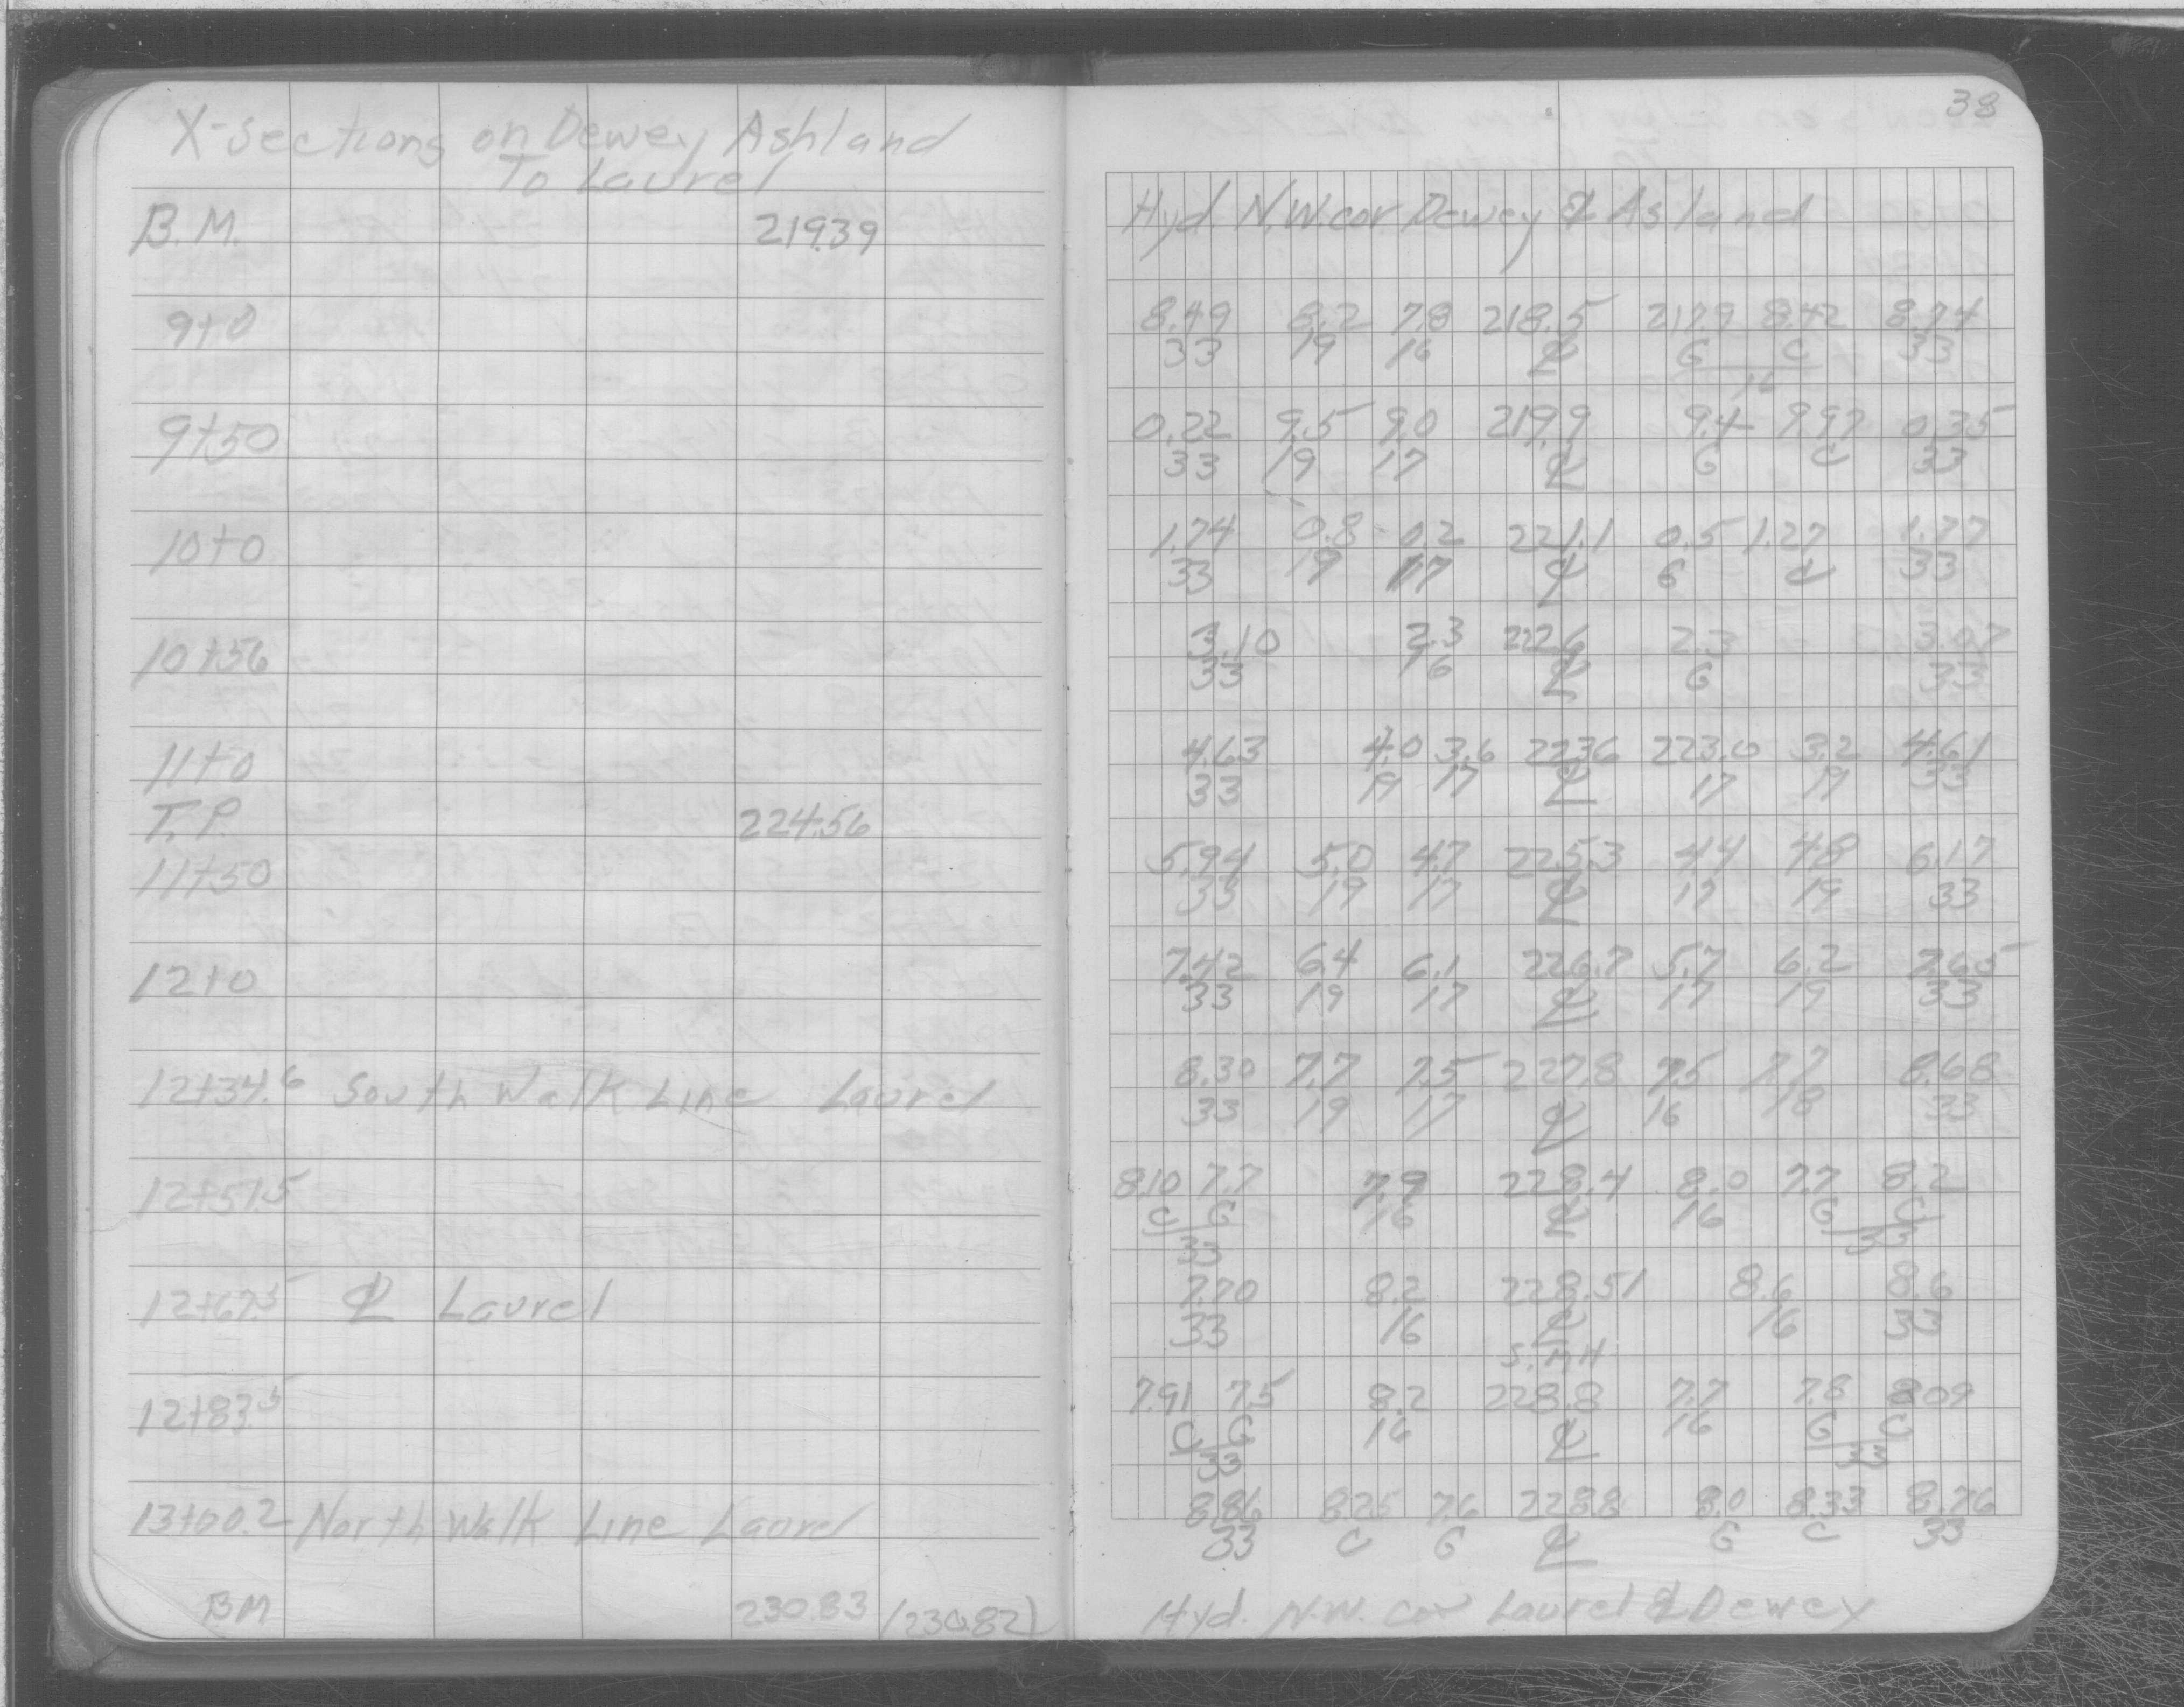 38
X-Sections on Dewey, Ashland
To Laurel
B.M. 219.39 Hyd. N.W. cor Dewey & Asland
9+0 8.49 8.2 7.8 218.5 217.9 8.42 8.74
33 19 16 ℄ G C 33
16
9+50 0.22 9.5 9.0 219.9 9.4 9.97 0.35
33 19 17 ℄ G C 33
10+0 1.74 0.8 0.2 221.1 0.5 1.27 1.77
33 19 17 ℄ G C 33
10+56 3.10 2.3 222.6 2.3 3.07
33 16 ℄ G 33
11+0 4.63 4.0 3.6 223.6 223.0 3.2 4.61
33 19 17 ℄ 17 19 33
T.P. 224.56
11+50 5.94 5.0 4.7 225.3 4.4 4.8 6.17
33 19 17 ℄ 17 19 33
12+0 7.42 6.4 6.1 226.7 5.7 6.2 7.65
33 19 17 ℄ 17 19 33
12+34.6 South Walk Line Laurel 8.30 7.7 7.5 227.8 7.5 7.7 8.68
33 19 17 ℄ 16 18 33
12+51.5 8.10 7.7 7.9 228.4 8.0 7.7 8.2
C G 16 ℄ 16 G C
33 33
12+67.5 ℄ Laurel 7.70 8.2 228.51 8.6 8.6
33 16 ℄ 16 33
S.MH
12+83.5 7.91 7.5 8.2 228.8 7.7 7.8 8.09
C G 16 ℄ 16 G C
33 33
13+00.2 North Walk Line Laurel 8.86 8.25 7.6 228.8 8.0 8.33 8.76
33 C G ℄ G C 33
BM 230.83 (230.82) Hyd. N.W. Cor Laurel & Dewey